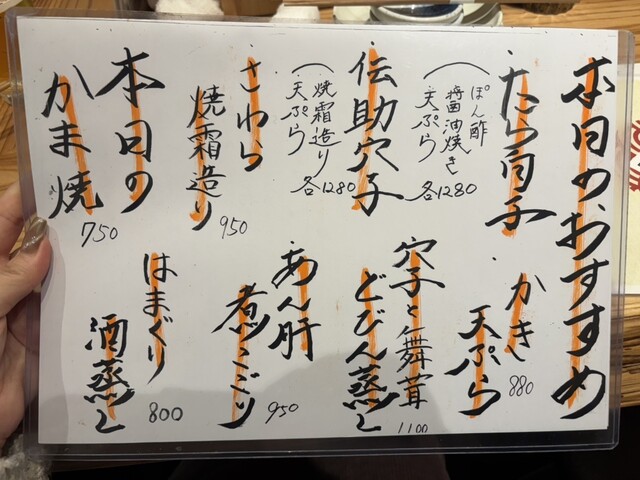 本日のおすすめ
たら白子
ぽん酢
醤油焼き
天ぷら
各1280
伝助穴子
焼霜造り
天ぷら
各1280
さわら
焼霜造り
950
本日の
かま焼
750
かき
天ぷら
880
穴子と舞茸
どびん蒸し
1100
あん肝
煮こごり
950
はまぐり
酒蒸し
800